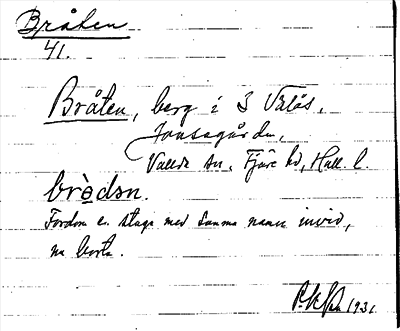 Bråten
41.
Bråten, berg i S Valås,
Jonsagården,
Vallda sn, Fjäre hd, Hall. l.
brὰdən.
Fordom en stuga med samma namn invid,
nu borta.
1931.